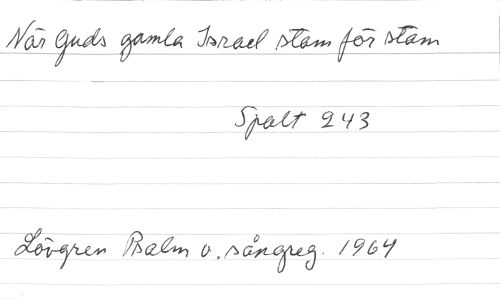 När Guds gamla Israel stam för stam
Spalt 243
Lövgren Psalm o. sångreg. 1964